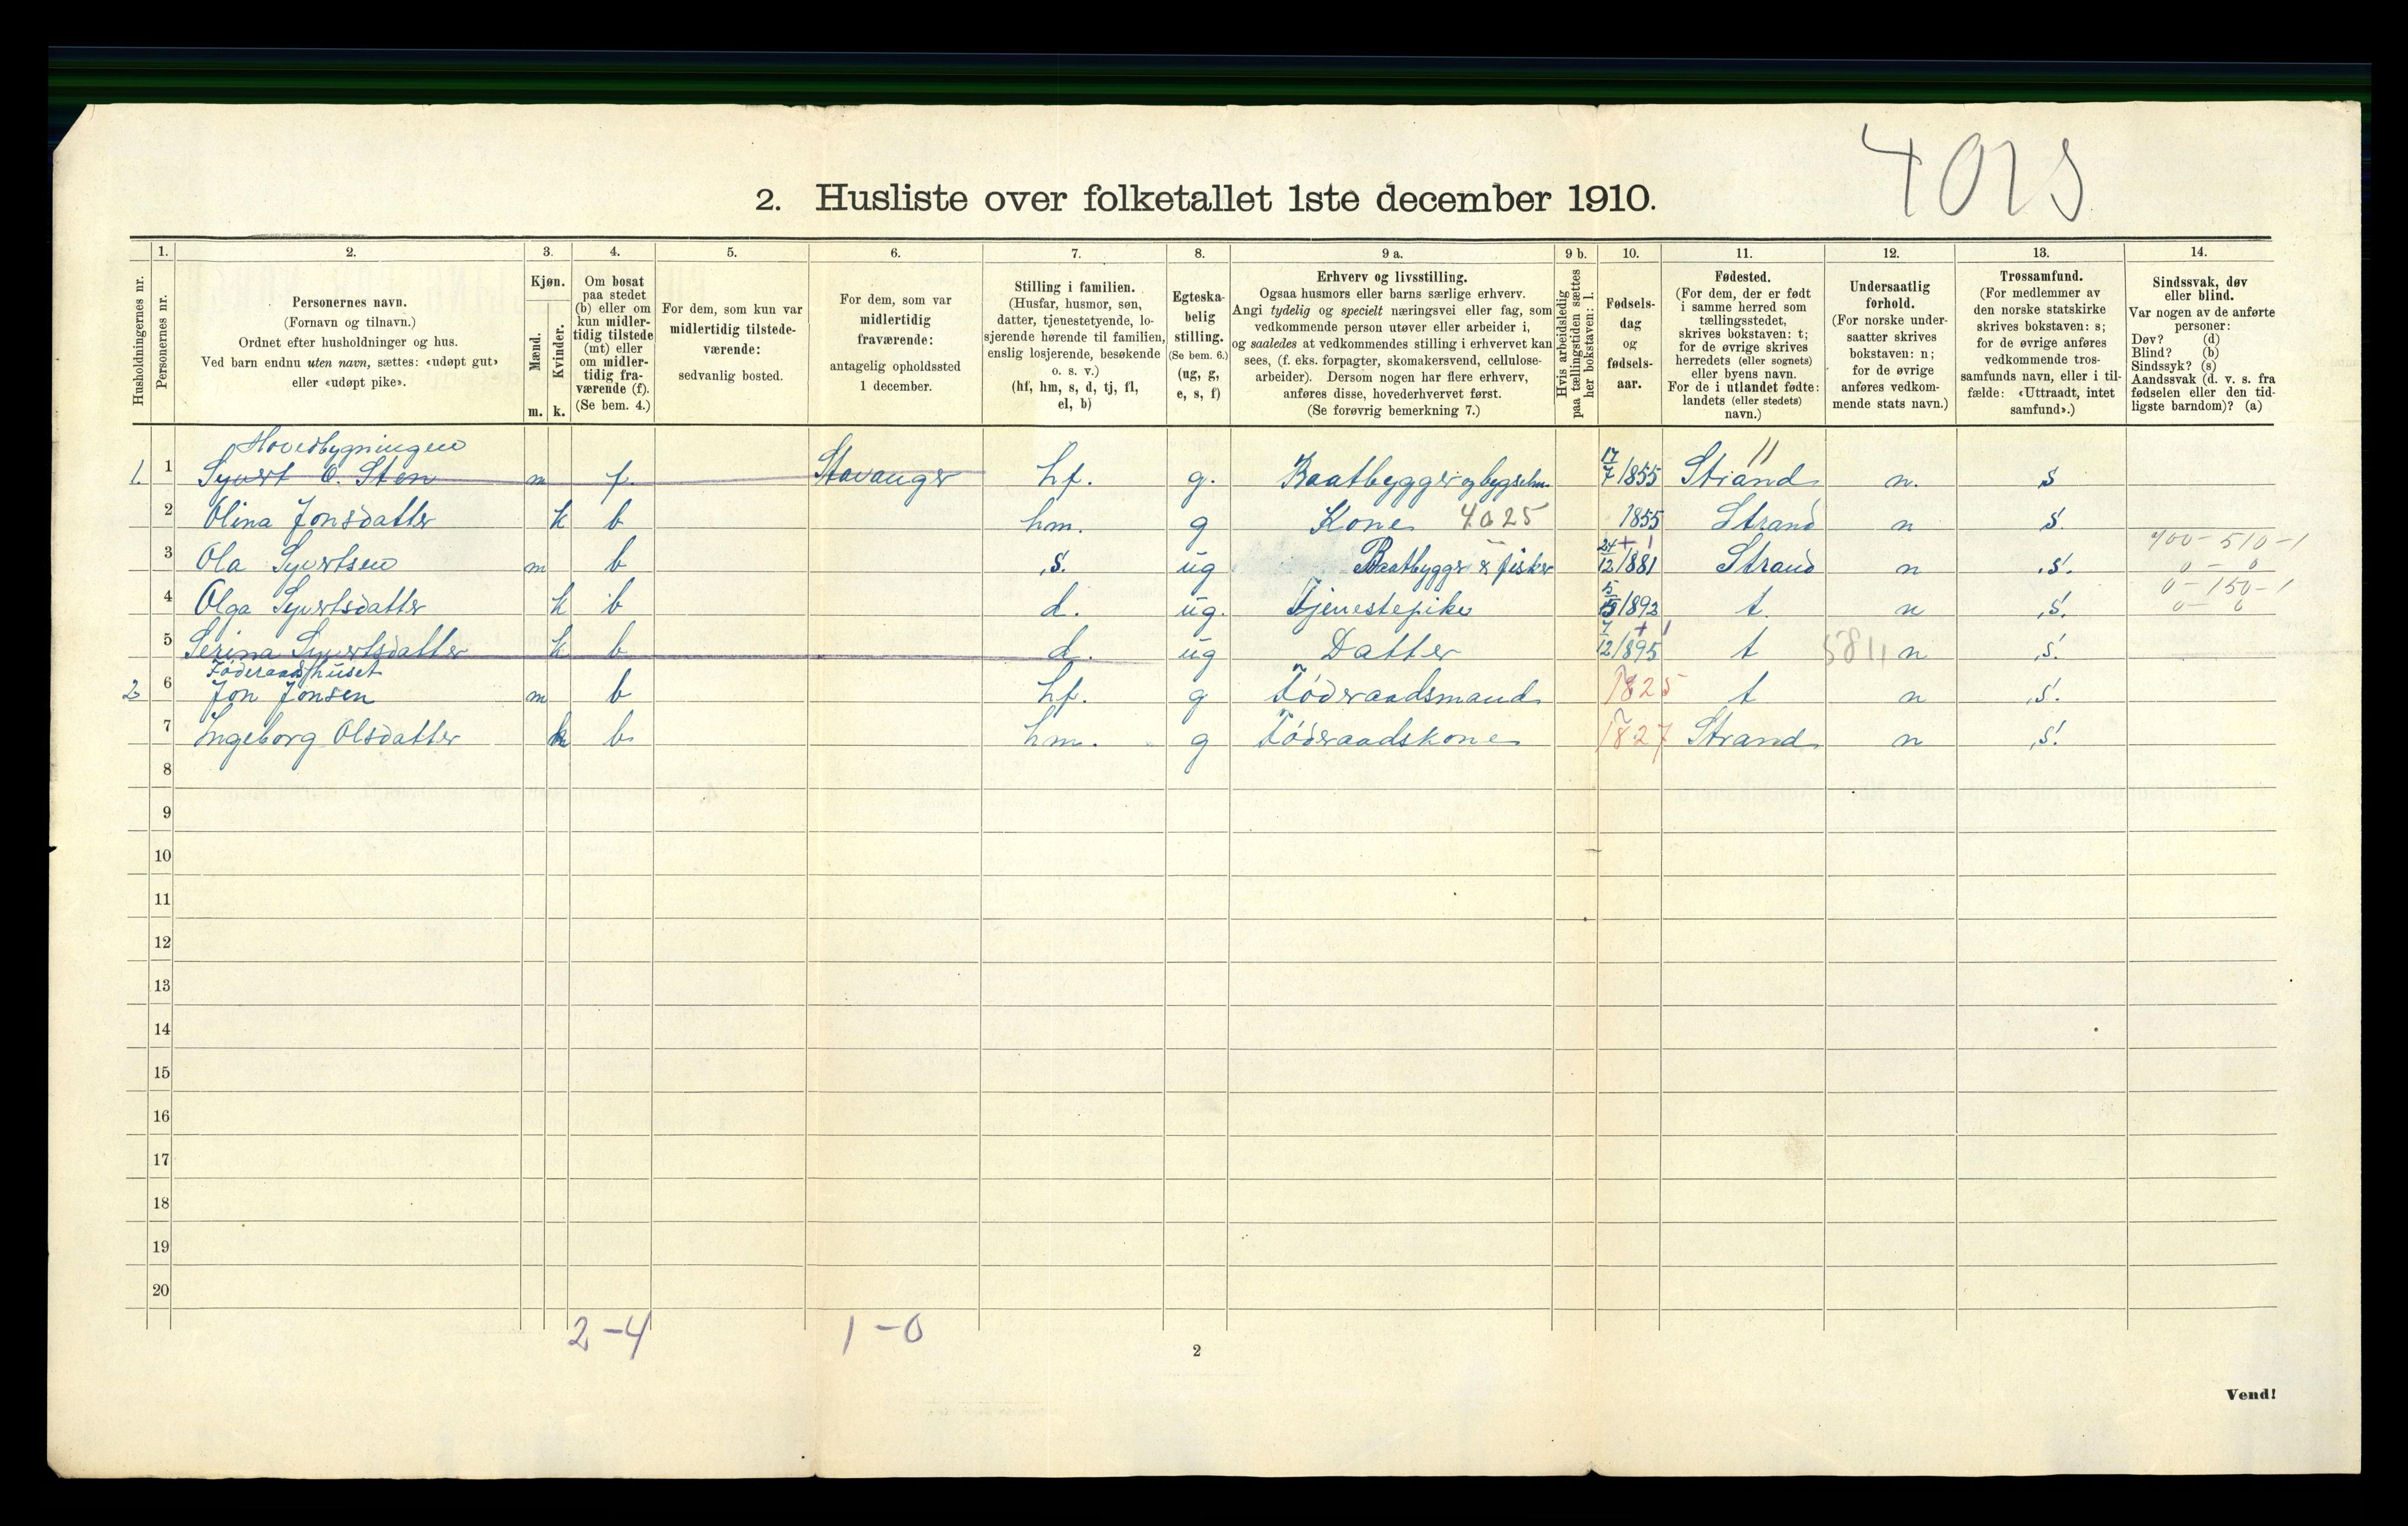 4025
2. Husliste over folketallet 1ste december 1910.
Husholdningernes nr.
1. Personernes nr.
2. Personernes navn. (Fornavn og tilnavn.) Ordnet efter husholdninger og hus. Ved barn endnu uten navn, sættes: «udøpt gut» eller «udøpt pike».
3. Kjøn. Mænd. m. Kvinder. k.
4. Om bosat paa stedet (b) eller om kun midlertidig tilstede (mt) eller om midlertidig fraværende (f). (Se bem. 4.)
5. For dem, som kun var midlertidig tilstedeværende: sedvanlig bosted.
6. For dem, som var midlertidig fraværende: antagelig opholdssted 1 december.
7. Stilling i familien. (Husfar, husmor, søn, datter, tjenestetyende, losjerende hørende til familien, enslig losjerende, besøkende o. s. v.) (hf, hm, s, d, tj, fl, el, b)
8. Egteskabelig stilling. (Se bem. 6.) (ug, g, e, s, f)
9 a. Erhverv og livsstilling. Ogsaa husmors eller barns særlige erhverv. Angi tydelig og specielt næringsvei eller fag, som vedkommende person utøver eller arbeider i, og saaledes at vedkommendes stilling i erhvervet kan sees, (f. eks. forpagter, skomakersvend, cellulosearbeider). Dersom nogen har flere erhverv, anføres disse, hovederhvervet først. (Se forøvrig bemerkning 7.)
9 b. Hvis arbeidsledig paa tællingstiden sættes her bokstaven: l.
10. Fødselsdag og fødselsaar.
11. Fødested. (For dem, der er født i samme herred som tællingsstedet, skrives bokstaven: t; for de øvrige skrives herredets (eller sognets) eller byens navn. For de i utlandet fødte: landets (eller stedets) navn.)
12. Undersaatlig forhold. (For norske undersaatter skrives bokstaven: n; for de øvrige anføres vedkommende stats navn.)
13. Trossamfund. (For medlemmer av den norske statskirke skrives bokstaven: s; for de øvrige anføres vedkommende trossamfunds navn, eller i tilfælde: «Uttraadt, intet samfund».)
14. Sindssvak, døv eller blind. Var nogen av de anførte personer: Døv? (d) Blind? (b) Sindssyk? (s) Aandssvak (d. v. s. fra fødselen eller den tidligste barndom)? (a)
Hovedbygningen
1. 1 Syvert O. Sten m f. Stavanger hf. g. Baatbygger og bygselm. 17/7 1855 Strand n. s
2 Olina Jonsdatter k b hm. g Kone 4025 1855 Strand n s.
3 Ola Syvertsen m b s. ug Baatbygger & fisker 24/12 1881 Strand n s. 400-510-1 0-0
4 Olga Syvertsdatter k b d. ug. Tjenestepike 1892 t. n s. 0-150-1 0-0
5 Serina Syvertsdatter k b d. ug Datter 7/12 1895 t n s.
Föderaadshuset
2 6 Jon Jonsen m b hf. g Föderaadsmand 1825 t n s.
7 Ingeborg Olsdatter k b. hm. g Föderaadskone 1827 Strand n s.
8
9
10
11
12
13
14
15
16
17
18
19
20
2-4 1-0
2
Vend!